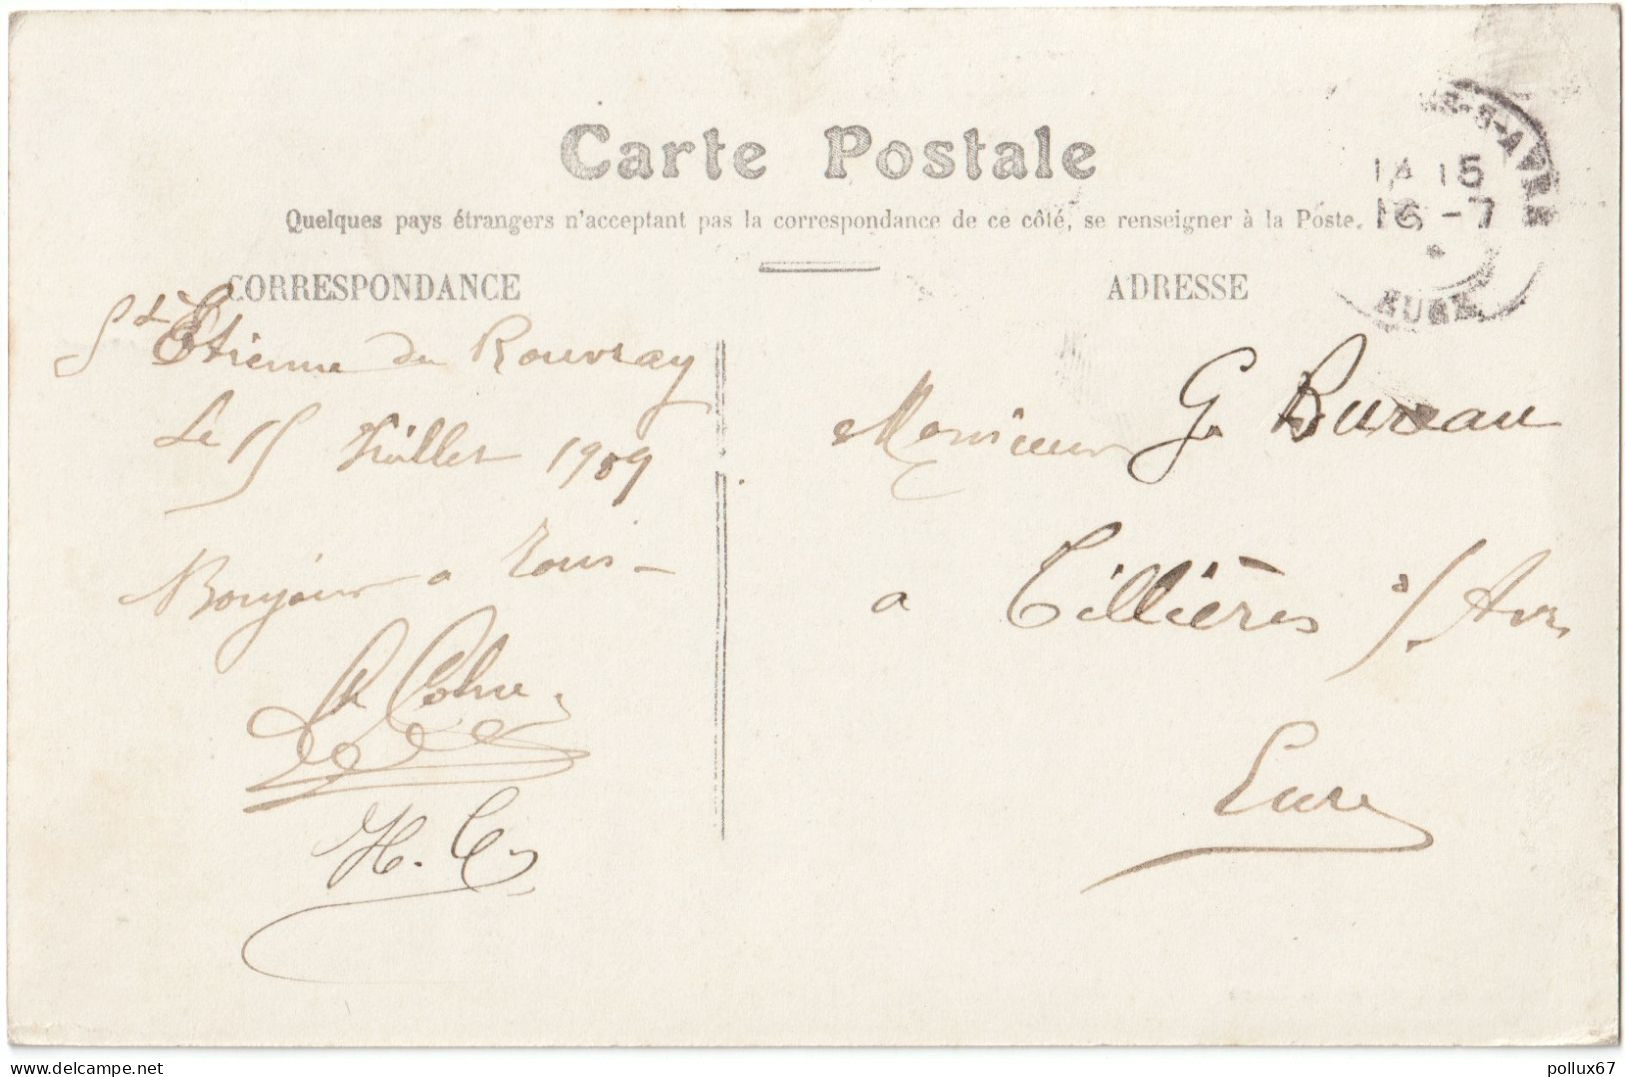 Carte Postale
Quelques pays étrangers n'acceptant pas la correspondance de ce côté, se renseigner à la Poste.
CORRESPONDANCE
St Etienne du Rouvray
Le 15 Juillet 1909
Bonjour a Tous
ADRESSE
Monsieur G. Bureau
a Tillières s/ Avre
Eure
S-AVRE
15
16 -7
EURE
delcampe.net
pollux67